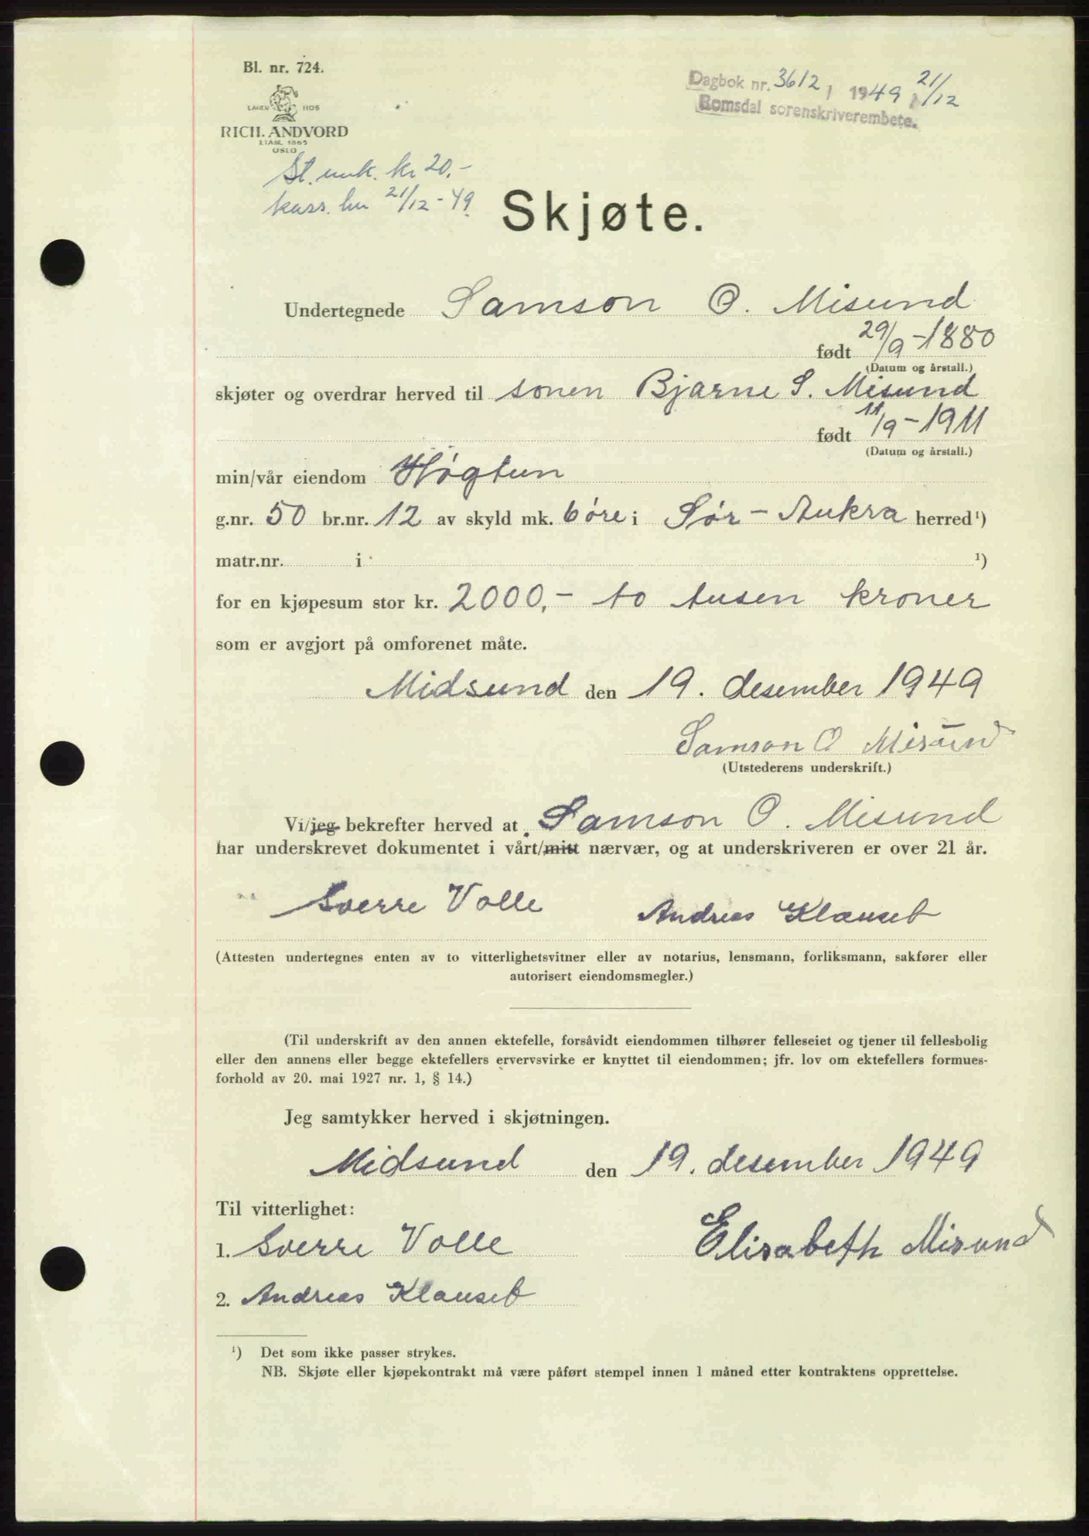 Bl. nr. 724.
Dagbok nr. 3612, 1949, 21/12
Romsdal sorenskriverembete.
LAGER 1105
RICH. ANDVORD
ETABL. 1865
OSLO
St. mrk. kr 20.-
kass. 21/12-49.
Skjøte.
Undertegnede Samson O. Misund
født 29/9-1880
(Datum og årstall.)
skjøter og overdrar herved til sønen Bjarne S. Misund
født 11/9-1911
(Datum og årstall.)
min/vår eiendom Høgtun
g.nr. 50 br.nr. 12 av skyld mk. 6 øre i Sør-Aukra herred¹)
matr.nr. i ¹)
for en kjøpesum stor kr. 2000,- to tusen kroner
som er avgjort på omforenet måte.
Midsund den 19. desember 1949
Samson O Misund
(Utstederens underskrift.)
Vi/jeg bekrefter herved at Samson O. Misund
har underskrevet dokumentet i vårt/mitt nærvær, og at underskriveren er over 21 år.
Sverre Volle Andreas Klauset
(Attesten undertegnes enten av to vitterlighetsvitner eller av notarius, lensmann, forliksmann, sakfører eller
autorisert eiendomsmegler.)
(Til underskrift av den annen ektefelle, forsåvidt eiendommen tilhører felleseiet og tjener til fellesbolig
eller den annens eller begge ektefellers ervervsvirke er knyttet til eiendommen; jfr. lov om ektefellers formues-
forhold av 20. mai 1927 nr. 1, § 14.)
Jeg samtykker herved i skjøtningen.
Midsund den 19. desember 1949
Til vitterlighet:
1. Sverre Volle Elisabeth Misund
2. Andreas Klauset
¹) Det som ikke passer strykes.
NB. Skjøte eller kjøpekontrakt må være påført stempel innen 1 måned etter kontraktens opprettelse.